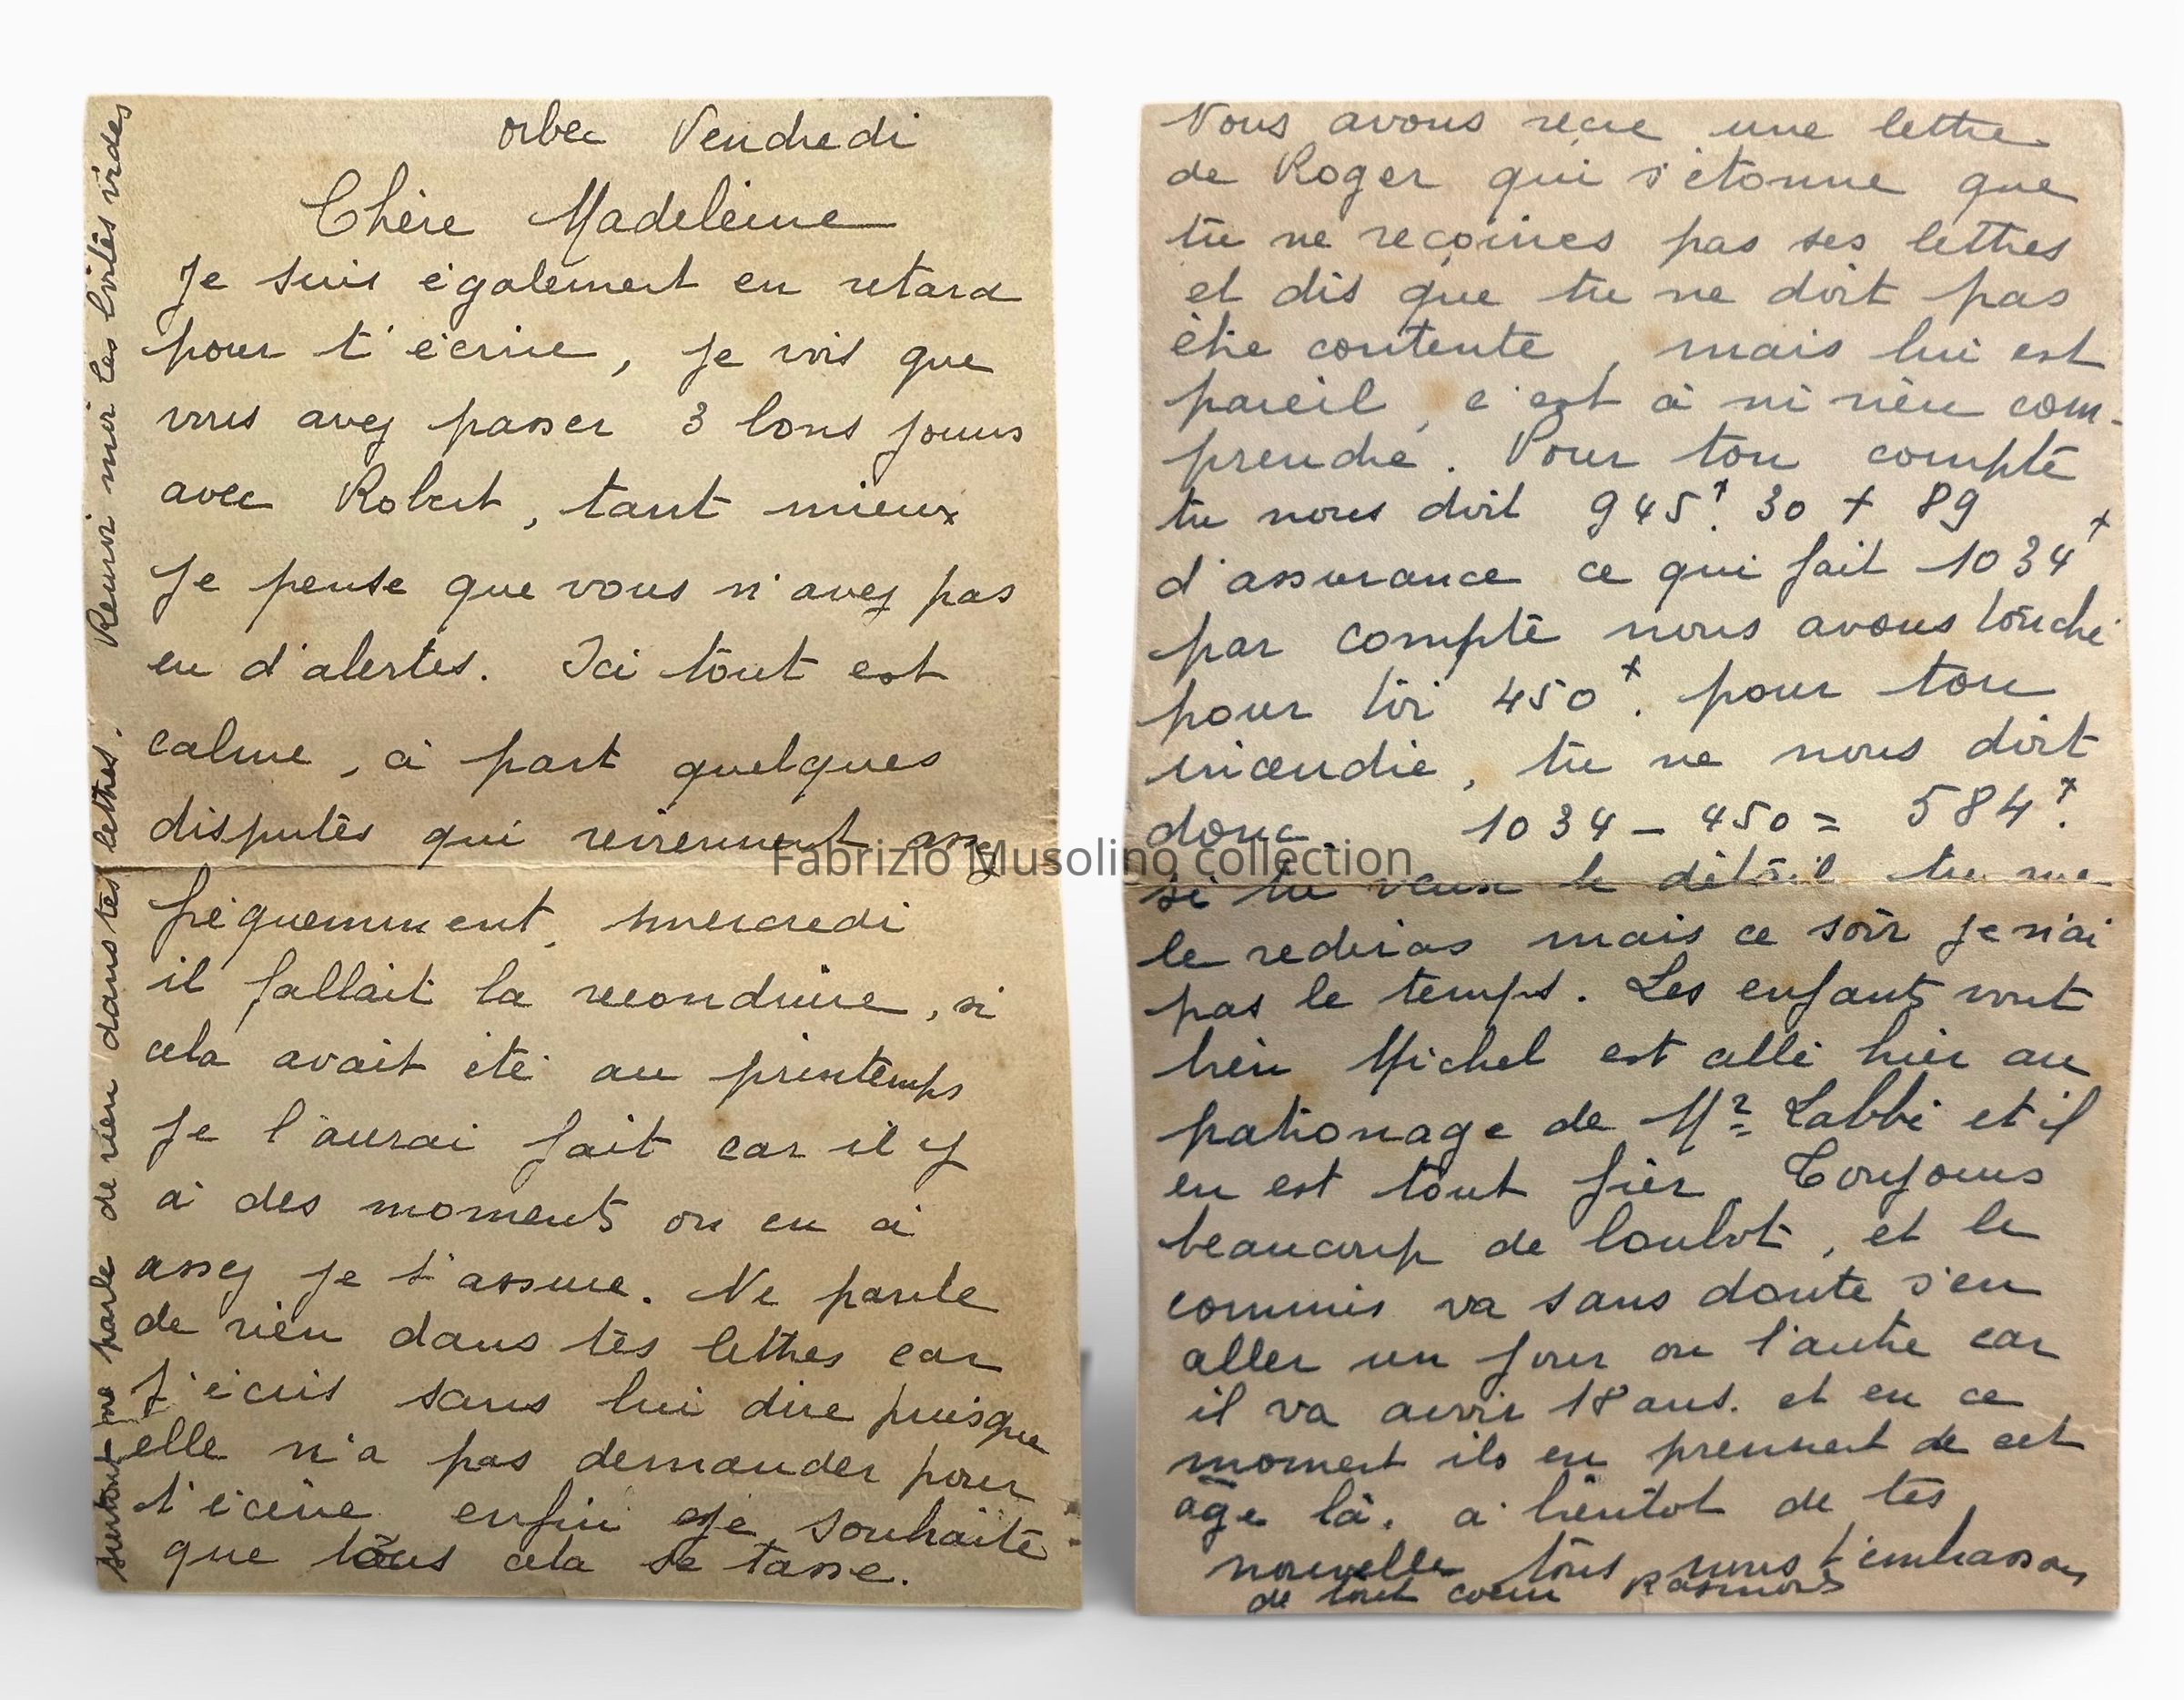 orbec Vendredi
Chère Madeleine
Je suis également en retard
pour t'écrire, je vois que
vous avez passer 3 bons jours
avec Robert, tant mieux
je pense que vous n'avez pas
eu d'alertes. Ici tout est
calme, à part quelques
disputes qui reviennent assez
fréquemment, mercredi
il fallait la reconduire, si
cela avait été au printemps
je l'aurai fait car il y
à des moments on en à
assez je t'assure. Ne parle
de rien dans tes lettres car
j'écris sans lui dire puisque
elle n'a pas demander pour
t'écrire enfin je souhaite
que tous cela se tasse.
surtout ne parle de rien dans tes lettres. Renvoi moi les boîtes vides
Nous avons reçue une lettre
de Roger qui s'étonne que
tu ne reçoives pas ses lettres
et dis que tu ne doit pas
être contente, mais lui est
pareil, c'est à ni rien com-
prendre. Pour ton compte
tu nous doit 945f. 30 + 89
d'assurance ce qui fait 1034f
par compte nous avons touché
pour toi 450f. pour ton
incendie, tu ne nous doit
donc 1034 - 450 = 584f.
si tu veux le détail tu me
le rediras mais ce soir je n'ai
pas le temps. Les enfants vont
bien Michel est allé hier au
patronage de Mr Labbé et il
en est tout fier. Toujours
beaucoup de boulot, et le
commis va sans doute s'en
aller un jour ou l'autre car
il va avoir 18 ans. et en ce
moment ils en prennent de cet
âge là. à bientot de tes
nouvelles tous nous t'embrassons
de tout coeur
Fabrizio Musolino collection